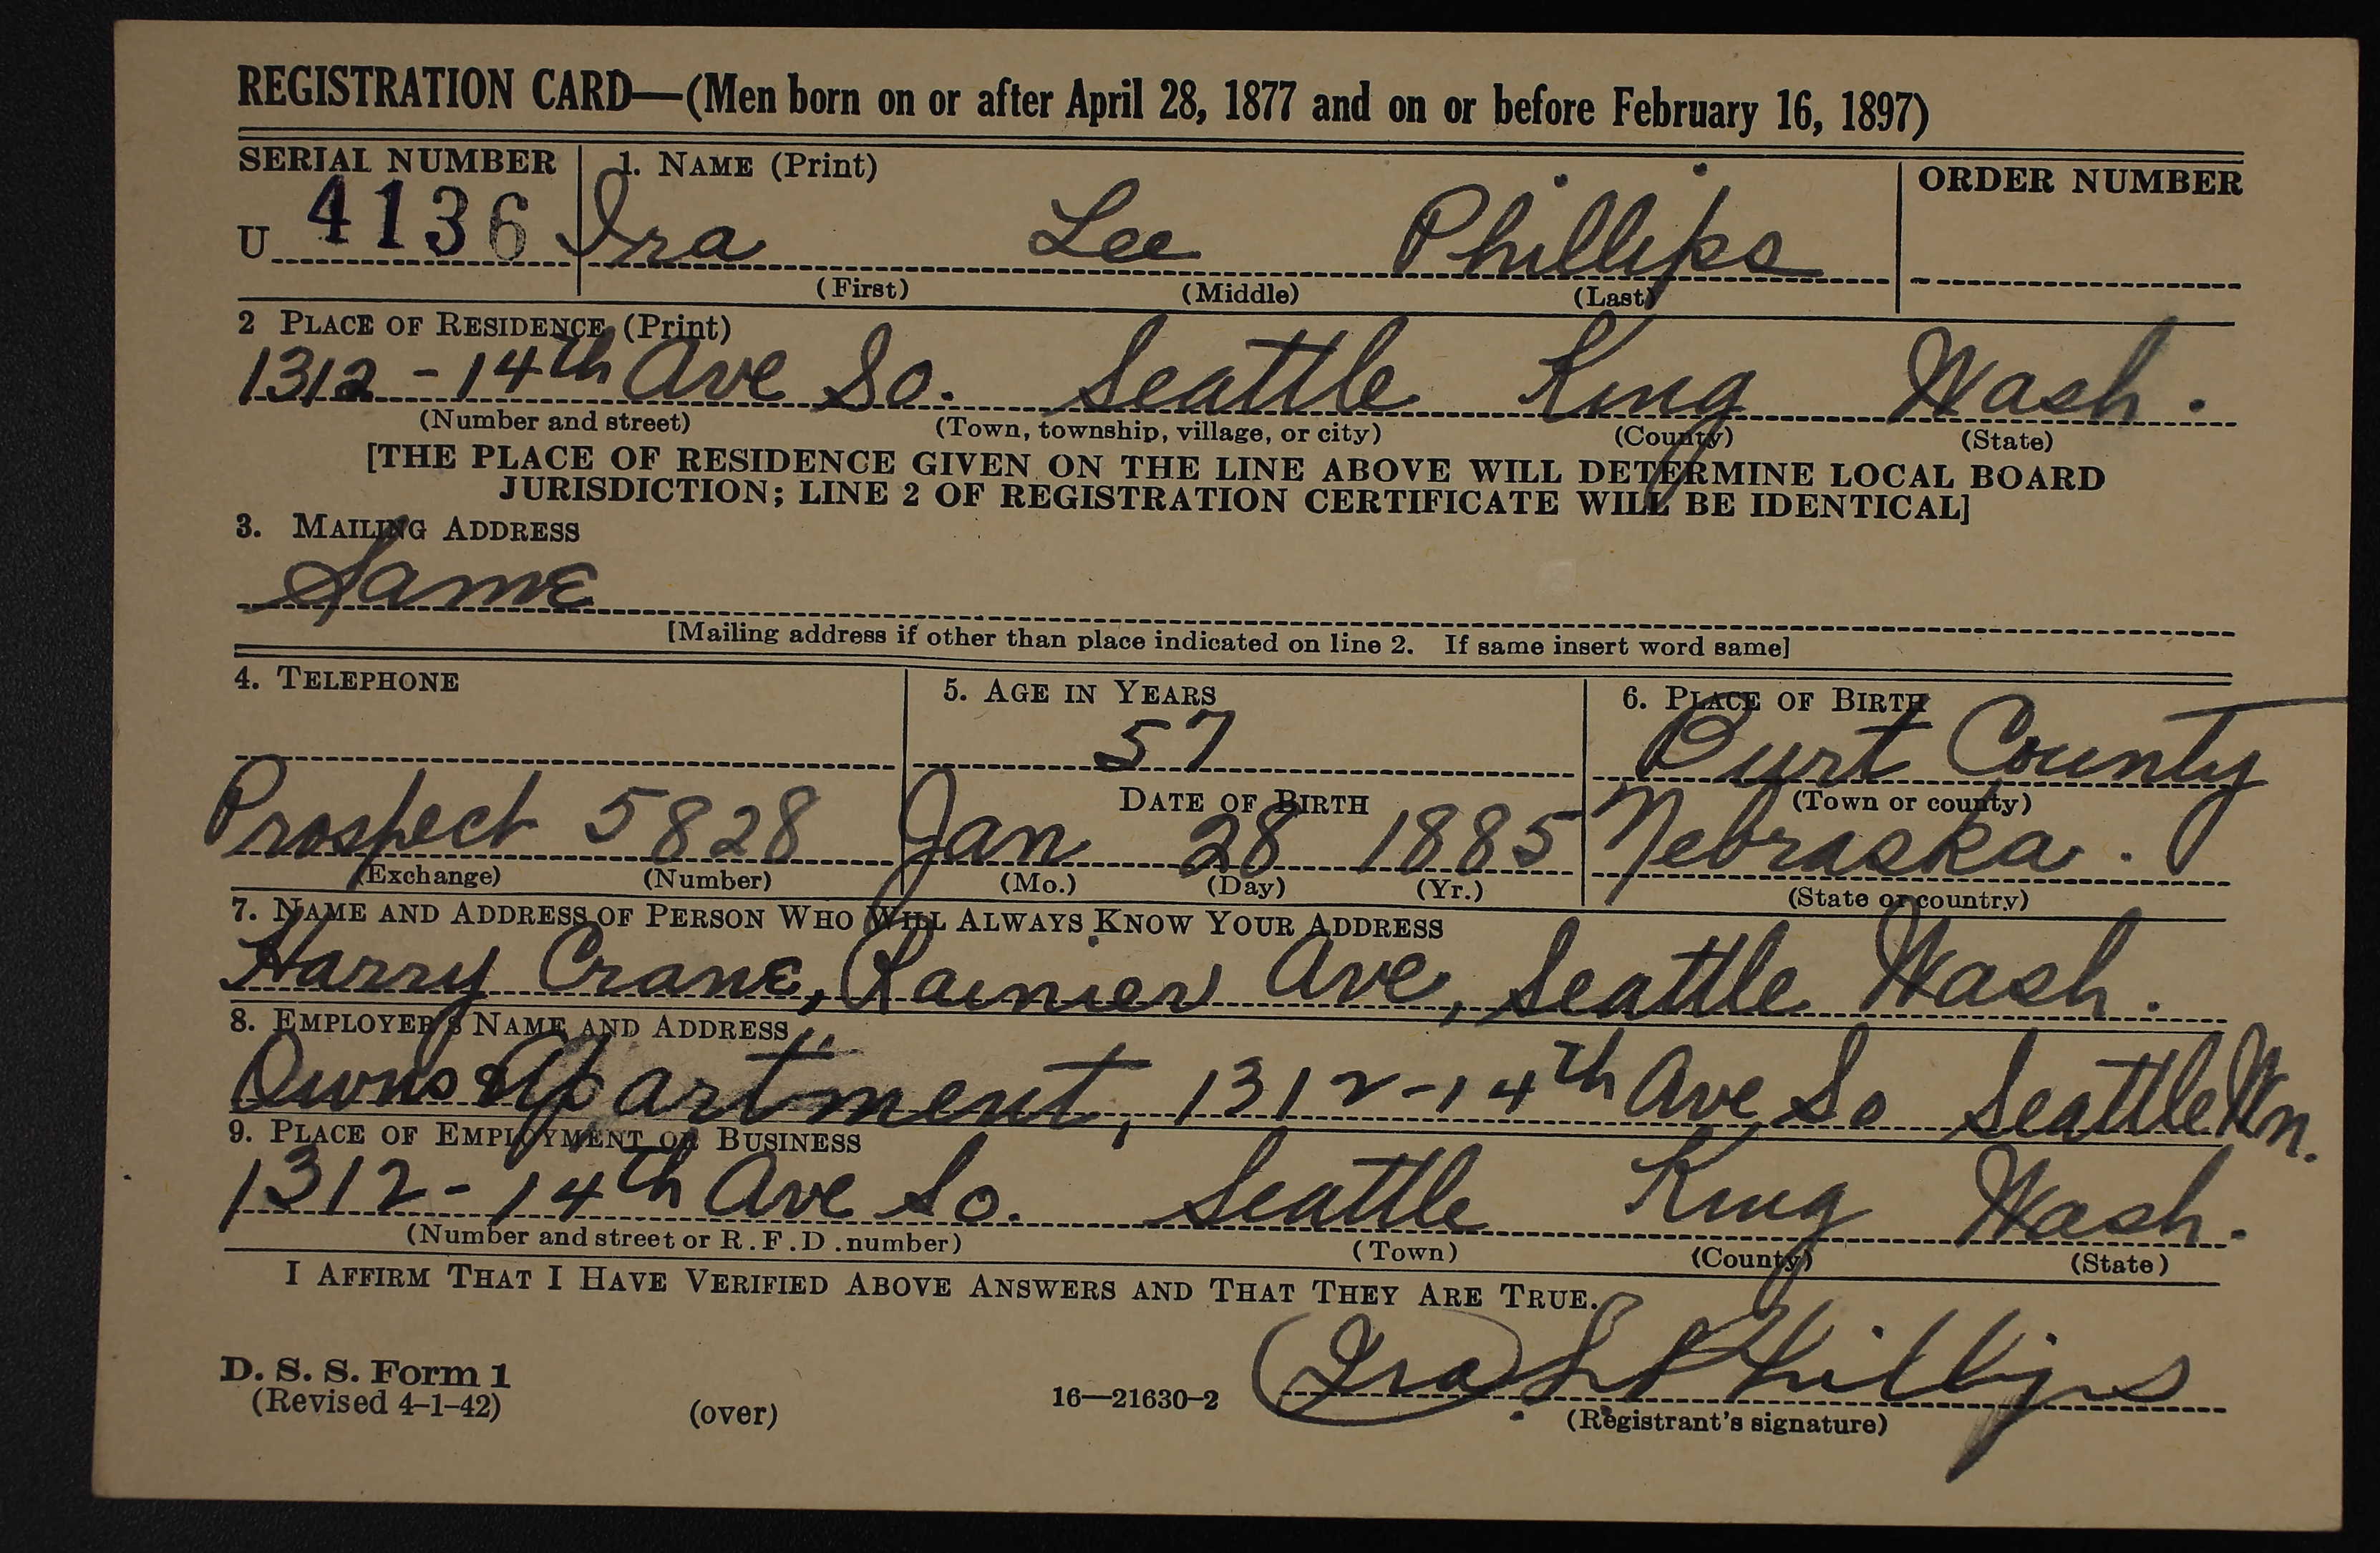 REGISTRATION CARD—(Men born on or after April 28, 1877 and on or before February 16, 1897)
SERIAL NUMBER 1. NAME (Print) ORDER NUMBER
U 4136 Ira Lee Phillips
(First) (Middle) (Last)
2 PLACE OF RESIDENCE (Print)
1312 - 14th Ave So. Seattle King Wash.
(Number and street) (Town, township, village, or city) (County) (State)
[THE PLACE OF RESIDENCE GIVEN ON THE LINE ABOVE WILL DETERMINE LOCAL BOARD
JURISDICTION; LINE 2 OF REGISTRATION CERTIFICATE WILL BE IDENTICAL]
3. MAILING ADDRESS
Same
[Mailing address if other than place indicated on line 2. If same insert word same]
4. TELEPHONE 5. AGE IN YEARS 6. PLACE OF BIRTH
57 Burt County
DATE OF BIRTH (Town or county)
Prospect 5828 Jan 28 1885 Nebraska.
(Exchange) (Number) (Mo.) (Day) (Yr.) (State or country)
7. NAME AND ADDRESS OF PERSON WHO WILL ALWAYS KNOW YOUR ADDRESS
Harry Crane, Rainier Ave, Seattle Wash.
8. EMPLOYER'S NAME AND ADDRESS
Owns Apartment, 1312-14th Ave So Seattle Wn.
9. PLACE OF EMPLOYMENT OR BUSINESS
1312 - 14th Ave So. Seattle King Wash.
(Number and street or R.F.D. number) (Town) (County) (State)
I AFFIRM THAT I HAVE VERIFIED ABOVE ANSWERS AND THAT THEY ARE TRUE.
Ira L Phillips
D. S. S. Form 1
(Revised 4-1-42) (over) 16—21630-2 (Registrant's signature)